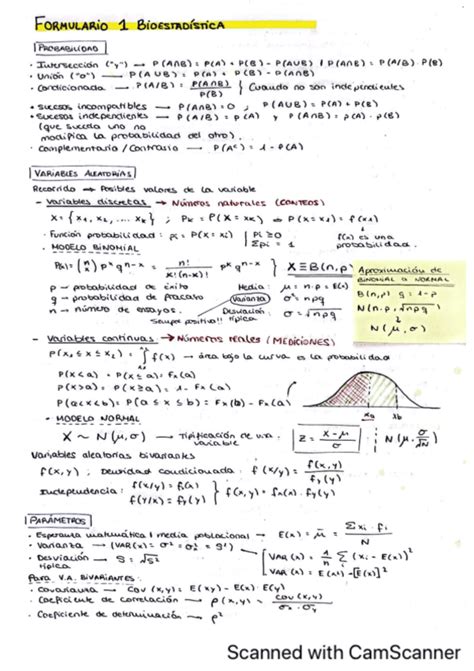 FORMULARIO 1 BIOESTADÍSTICA
PROBABILIDAD
· Intersección ("y") → P(A∩B) = P(A) + P(B) - P(A∪B) / P(A∩B) = P(A/B) · P(B)
· Unión ("o") → P(A∪B) = P(A) + P(B) - P(A∩B)
· Condicionada → P(A/B) = P(A∩B)/P(B) } Cuando no son independientes
· Sucesos incompatibles → P(A∩B) = 0 ; P(A∪B) = P(A) + P(B)
· Sucesos independientes → P(A/B) = P(A) y P(A∩B) = P(A) · P(B)
(que suceda uno no
modifica la probabilidad del otro).
· Complementario / Contrario → P(Aᶜ) = 1 - P(A)
VARIABLES ALEATORIAS
Recorrido → Posibles valores de la variable
- Variables discretas → Números naturales (CONTEOS)
X = {x₁, x₂, ... xₖ} ; Pₖ = P(X = xₖ) → P(X = x₁) = f(x₁)
· Función probabilidad: pᵢ = P(X = xᵢ) | pᵢ ≥ 0 f(x) es una
Σpᵢ = 1 probabilidad.
· MODELO BINOMIAL
P(x) = (n x) pˣ qⁿ⁻ˣ = n!/x!(n-x)! pˣ qⁿ⁻ˣ } X ≡ B(n,p)
p → probabilidad de éxito Media: μ = n·p = E(x)
q → probabilidad de fracaso Varianza σ² = npq
n → número de ensayos. Desviación típica σ = √npq
Siempre positiva!!
Aproximación de
BINOMIAL a NORMAL
B(n,p) q = 1-p
N(n·p, √npq)
N(μ,σ)
- Variables continuas → Números reales (MEDICIONES)
P(x₁ ≤ x ≤ x₂) = ∫ f(x) → área bajo la curva es la probabilidad
P(x < a) = P(x ≤ a) = Fx(a)
P(x > a) = P(x ≥ a) = 1 - Fx(a)
P(a < x < b) = P(a ≤ x ≤ b) = Fx(b) - Fx(a)
xa xb
· MODELO NORMAL
X ~ N(μ,σ) → Tipificación de una variable Z = x-μ/σ ; N(μ, σ/√N)
Variables aleatorias bivariantes
f(x,y) ; Densidad condicionada: f(x/y) = f(x,y)/fy(y)
Independencia: f(x/y) = f(x)
f(y/x) = fy(y) } f(x,y) = fx(x) · fy(y)
PARÁMETROS
· Esperanza matemática / media poblacional → E(x) = μ = Σxᵢ·fᵢ/N
· Varianza → (VAR(x) = σ² = σx² = S²)
· Desviación típica → S = √S²
VAR(x) = 1/n Σ (xᵢ - E(x))²
VAR(x) = E(x²) - [E(x)]²
Para V.A. BIVARIANTES:
· Covarianza → Cov(x,y) = E(xy) - E(x)·E(y)
· Coeficiente de correlación → ρ(x,y) = Cov(x,y)/σx·σy
· Coeficiente de determinación → ρ²
Scanned with CamScanner